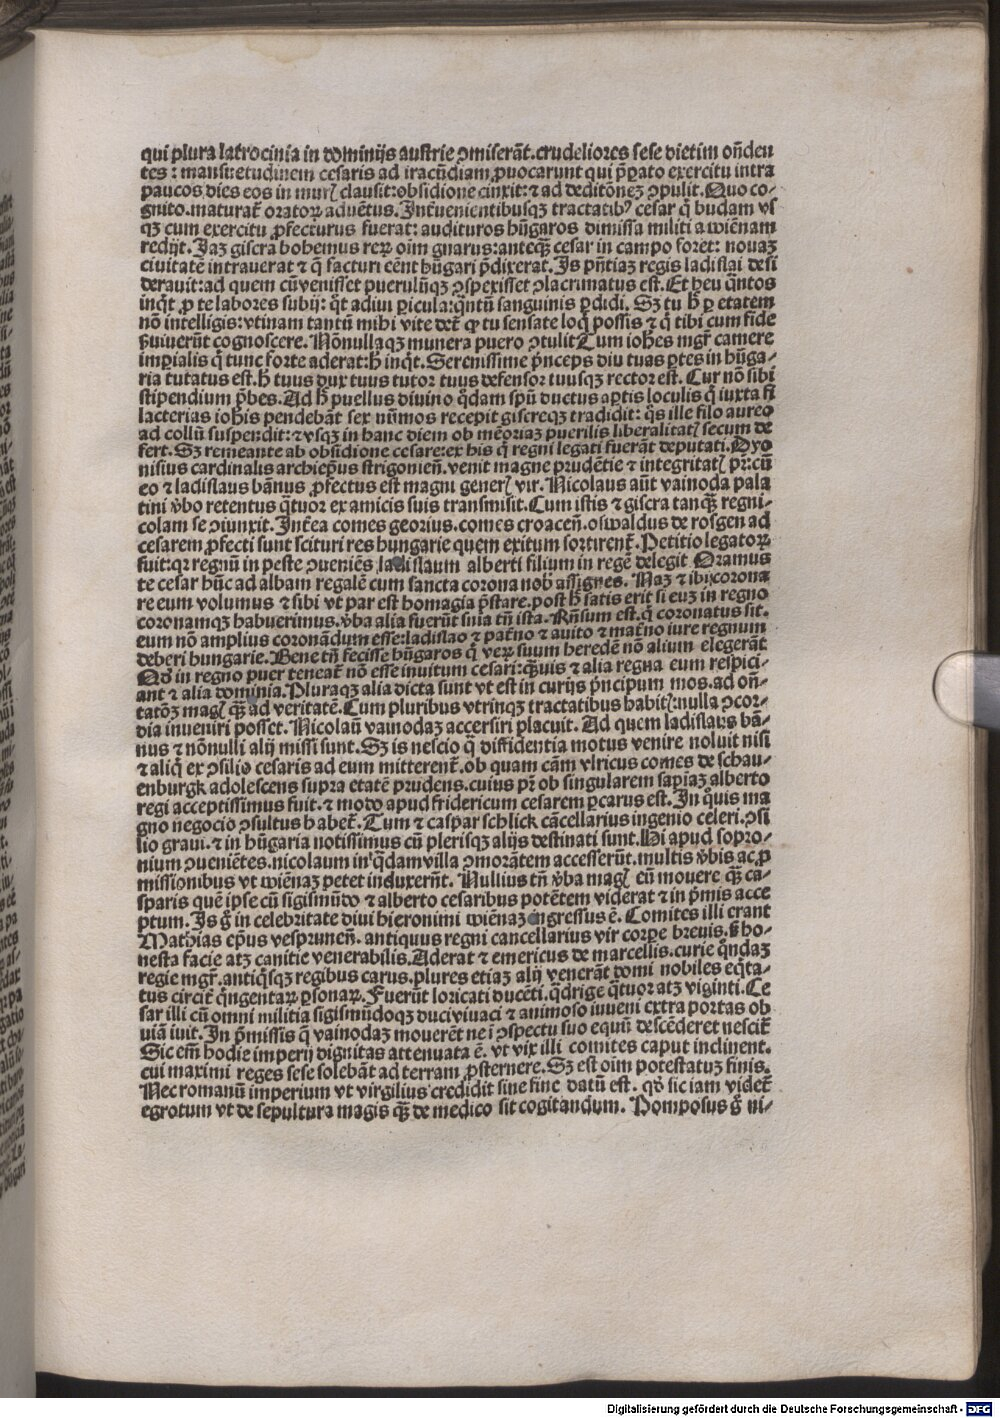 qui plura latrocinia in dominijs austrie ↄmiserāt.crudeliores sese dietim oñden
tes : mansuetudinem cesaris ad iracūdiam ꝓuocarunt qui p̄rato exercitu intra
paucos dies eos in murꝭ clausit:obsidione cinxit:⁊ ad deditōneꝫ ↄpulit.Quo co-
gnito.maturāt oratoꝝ aduētus.Int̄uenientibusqꝫ tractatibꝰ cesar q̄ budam vs
qꝫ cum exercitu ꝓfecturus fuerat: audituros hūgaros dimissa militi a wiēnam
redijt.Jaꝫ giscra bohemus reꝝ oīm gnarus:anteqꝫ̄ cesar in campo foret: nouaꝫ
ciuitatē intrauerat ⁊ q̄ facturi eēnt hūgari p̄dixerat.Is pn̄tiaꝫ regis ladislai desi
derauit:ad quem cū venisset puerulūqꝫ ↄspexisset ↄlacrimatus est.Et heu q̄ntos
inq̄t ꝓ te labores subij: q̄t adiui ꝑicula:q̄ntū sanguinis ꝑdidi. Sꝫ tu h̄ ꝑ etatem
nō intelligis:vtinam tantū mihi vite det̄ ꝙ tu sensate loq̄ possis ⁊ q̄ tibi cum fide
ẜuiuerūt cognoscere. Nōnullaqꝫ munera puero ↄtulit Tum ioh̄es mgr̄ camere
imꝑialis q̄ tunc forte aderat:h̄ inq̄t.Serenissime p̄nceps diu tuas ꝑtes in hūga-
ria tutatus est.h̄ tuus dux tuus tutor tuus defensor tuusqꝫ rector est. Cur nō sibi
stipendium p̄bes.Ad h̄ puellus diuino q̄dam spū ductus aptis loculis q̄ iuxta fi
lacterias ioh̄is pendebāt sex nūmos recepit giscreqꝫ tradidit: q̄s ille filo aureo
ad collū suspendit:⁊ vsqꝫ in hanc diem ob mēoriaꝫ puerilis liberalitatꝭ secum de
fert.Sꝫ remeante ab obsidione cesare:ex his q̄ regni legati fuerāt deputati.Dyo
nisius cardinalis archiep̄us strigonien̄.venit magne prudētie ⁊ integritatꝭ pr̄:cū
eo ⁊ ladislaus bānus ꝓfectus est magni generꝭ vir.Nicolaus aūt vainoda pala
tini v̄bo retentus q̄tuor ex amicis suis transmisit.Cum istis ⁊ giscra tanqꝫ̄ regni-
colam se ↄiunxit.Int̄ea comes georius.comes croacen̄.oswaldus de rosgen ad
cesarem ꝓfecti sunt scituri res hungarie quem exitum sortirent̄.Petitio legatoꝝ
fuit:qꝛ regnū in peste ↄueniēs ladislaum alberti filium in regē delegit Oramus
te cesar hūc ad albam regalē cum sancta corona nob̄ assignes. Naꝫ ⁊ ibi corona
re eum volumus ⁊ sibi vt par est homagia p̄stare.post h̄ satis erit si euꝫ in regno
coronamqꝫ habuerimus.v̄ba alia fuerūt snīa tn̄ ista.Rn̄sum est.q̄ coronatus sit.
eum nō amplius coronādum esse:ladislao ⁊ pat̄no ⁊ auito ⁊ mat̄no iure regnum
deberi hungarie.Bene tn̄ fecisse hūgaros q̄ veꝝ suum heredē nō alium elegerāt
Qd̄ in regno puer teneat̄ nō esse inuitum cesari:q̄uis ⁊ alia regna eum respici-
ant ⁊ alia dominia.Pluraqꝫ alia dicta sunt vt est in curijs p̄ncipum mos.ad on̄-
tatōꝫ magꝭ qꝫ̄ ad veritatē.Cum pluribus vtrinqꝫ tractatibus habitꝭ:nulla ↄcor-
dia inueniri posset.Nicolaū vainodaꝫ accersiri placuit. Ad quem ladislaus bā-
nus ⁊ nōnulli alij missi sunt.Sꝫ is nescio q̄ diffidentia motus venire noluit nisi
⁊ aliq̄ ex ↄsilio cesaris ad eum mitterent̄.ob quam cām vlricus comes de schau-
enburgk adolescens supra etatē prudens.cuius pr̄ ob singularem sapīaꝫ alberto
regi acceptissimus fuit.⁊ modo apud fridericum cesarem ꝑcarus est.In q̄uis ma
gno negocio ↄsultus habet̄.Tum ⁊ caspar schlick cācellarius ingenio celeri.ↄsi
lio graui.⁊ in hūgaria notissimus cū plerisqꝫ alijs destinati sunt.Hi apud sopro-
nium ↄueniētes.nicolaum in q̄dam villa ↄmorātem accesserūt.multis v̄bis ac ꝓ
missionibus vt wiēnaꝫ petet induxerūt. Nullius tn̄ v̄ba magꝭ eū mouere qꝫ̄ ca-
sparis quē ipse cū sigismūdo ⁊ alberto cesaribus potētem viderat ⁊ in p̄mis acce
ptum.Is g̊ in celebritate diui hieronimi wiēnaꝫ ingressus ē. Comites illi erant
Mathias ep̄us vesprunen̄. antiquus regni cancellarius vir corꝑe breuis.ẜ ho-
nesta facie atꝫ canitie venerabilis.Aderat ⁊ emericus de marcellis.curie q̄ndaꝫ
regie mgr̄.antiq̄sqꝫ regibus carus.plures etiaꝫ alij venerāt domi nobiles eq̄ta-
tus circit̄ q̄ngentaꝝ ꝑsonaꝝ.Fuerūt loricati ducēti.q̄drige q̄tuor atꝫ viginti.Ce
sar illi cū omni militia sigismūdoqꝫ duci viuaci ⁊ animoso iuueni extra portas ob
uiā iuit.In p̄missis q̄ vainodaꝫ mouerēt ne ī ↄspectu suo equū descēderet nescit̄
Sic em̄ hodie imperij dignitas attenuata ē. vt vix illi comites caput inclinent.
cui maximi reges sese solebāt ad terram ꝓsternere.Sꝫ est oīm potestatuꝫ finis.
Nec romanū imperium vt virgilius credidit sine fine datū est. qd̄ sic iam videt̄
egrotum vt de sepultura magis qꝫ̄ de medico sit cogitandum. Pomposus g̊ ni-
Digitalisierung gefördert durch die Deutsche Forschungsgemeinschaft - DFG